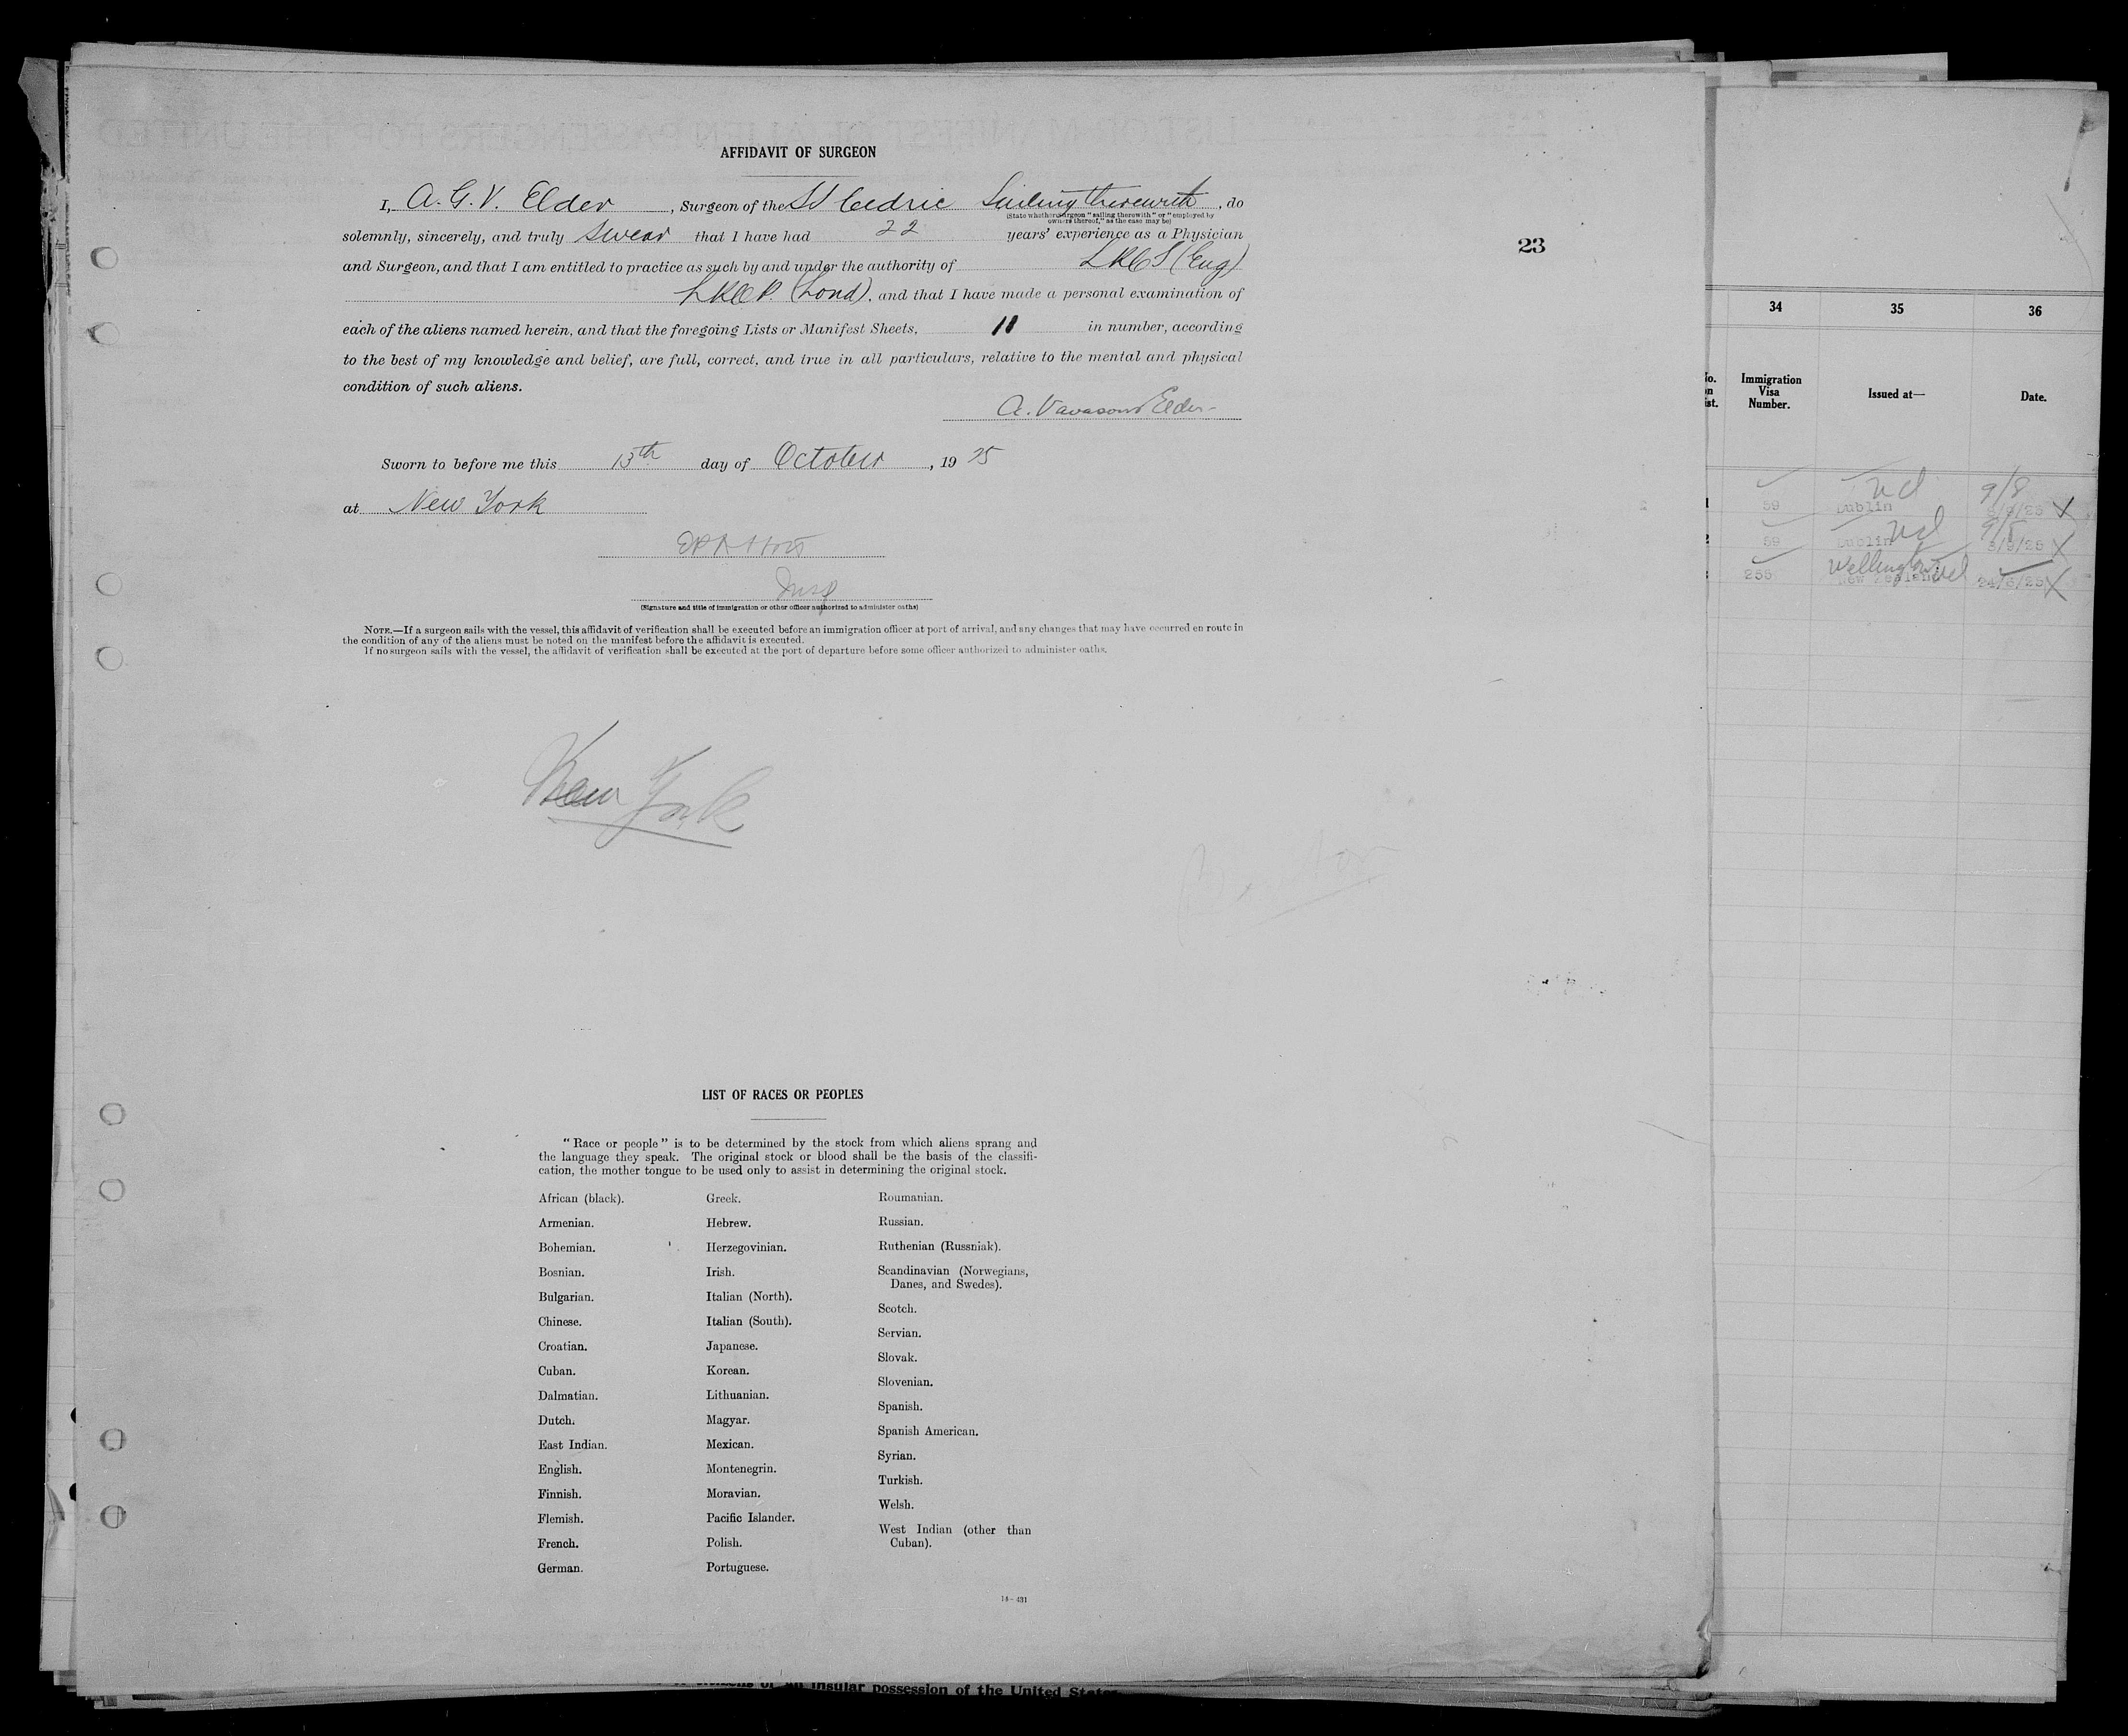 AFFIDAVIT OF SURGEON
I, A. G. V. Elder, Surgeon of the SS Cedric Sailing therewith, do
(State whether surgeon "sailing therewith" or "employed by
owners thereof," as the case may be)
solemnly, sincerely, and truly swear that I have had 22 years' experience as a Physician
and Surgeon, and that I am entitled to practice as such by and under the authority of LRCS (Eng)
LRCP. (Lond), and that I have made a personal examination of
each of the aliens named herein, and that the foregoing Lists or Manifest Sheets, 11 in number, according
to the best of my knowledge and belief, are full, correct, and true in all particulars, relative to the mental and physical
condition of such aliens.
A. Vavasour Elder
Sworn to before me this 13th day of October, 1925
at New York
Insp
(Signature and title of immigration or other officer authorized to administer oaths)
NOTE.—If a surgeon sails with the vessel, this affidavit of verification shall be executed before an immigration officer at port of arrival, and any changes that may have occurred en route in
the condition of any of the aliens must be noted on the manifest before the affidavit is executed.
If no surgeon sails with the vessel, the affidavit of verification shall be executed at the port of departure before some officer authorized to administer oaths.
23
New York
LIST OF RACES OR PEOPLES
"Race or people" is to be determined by the stock from which aliens sprang and
the language they speak. The original stock or blood shall be the basis of the classifi-
cation, the mother tongue to be used only to assist in determining the original stock.
African (black).
Armenian.
Bohemian.
Bosnian.
Bulgarian.
Chinese.
Croatian.
Cuban.
Dalmatian.
Dutch.
East Indian.
English.
Finnish.
Flemish.
French.
German.
Greek.
Hebrew.
Herzegovinian.
Irish.
Italian (North).
Italian (South).
Japanese.
Korean.
Lithuanian.
Magyar.
Mexican.
Montenegrin.
Moravian.
Pacific Islander.
Polish.
Portuguese.
Roumanian.
Russian.
Ruthenian (Russniak).
Scandinavian (Norwegians,
Danes, and Swedes).
Scotch.
Servian.
Slovak.
Slovenian.
Spanish.
Spanish American.
Syrian.
Turkish.
Welsh.
West Indian (other than
Cuban).
14-431
34 35 36
Immigration
Visa
Number.
Issued at—
Date.
9/8
59 Dublin
59 Dublin 8/9/25
Wellington
255 New Zealand 24/6/25
insular possession of the United States